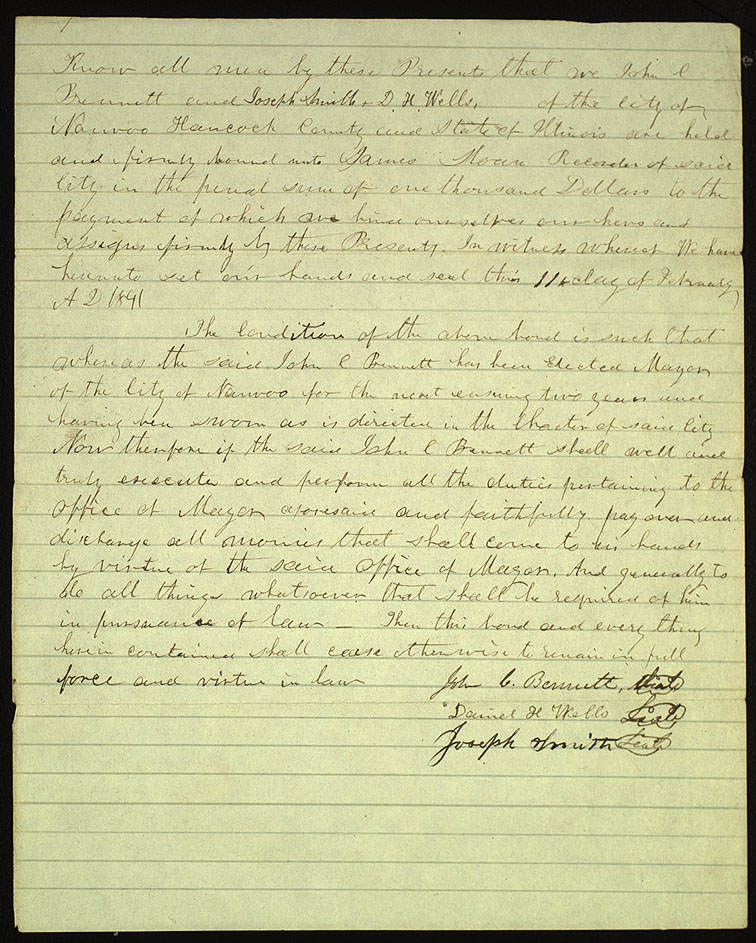 Know all men by these Presents that we John C
Bennett and Joseph Smith & D. H. Wells, of the city of
Nauvoo Hancock County and State of Illinois are held
and firmly bound unto James Sloan Recorder of said
City in the penal sum of one thousand Dollars to the
payment of which we bind ourselves our heirs and
assigns firmly by these Presents. In witness whereof We have
hereunto set our hands and seal this 11th day of February
A D 1841
The Condition of the above bond is such that
whereas the said John C Bennett has been Elected Mayor
of the City of Nauvoo for the next ensuing two years and
having been sworn as is directed in the Charter of said City
Now therefore if the said John C Bennett shall well and
truly execute and perform all the duties pertaining to the
office of Mayor aforesaid and faithfully pay over and
discharge all monies that shall come to his hands
by virtue of the said office of Mayor. And generally to
do all things whatsoever that shall be required of him
in pursuance of law — Then this bond and every thing
herein contained shall cease otherwise to remain in full
force and virtue in law
John C. Bennett, Seal
Daniel H Wells Seal
Joseph Smith Seal